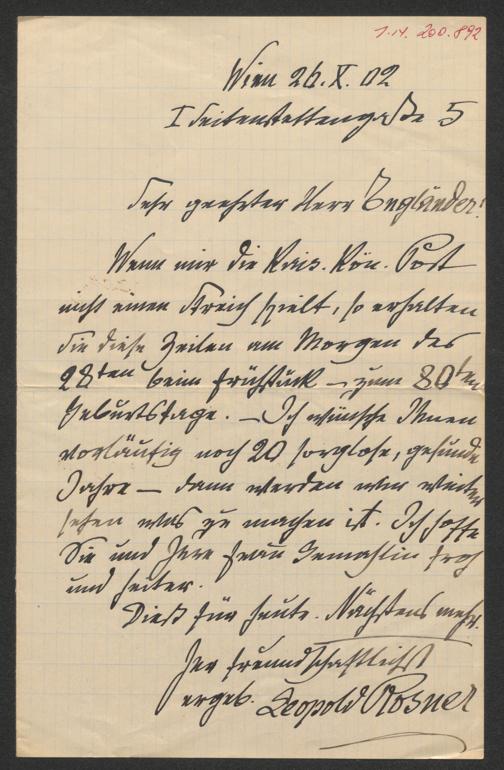 1.14.200.892
Wien 26.X.02
I Seitenstettengasse 5
Sehr geehrter Herr Engländer!
Wenn mir die Kais. Kön. Post
nicht einen Streich spielt, so erhalten
Sie diese Zeilen am Morgen des
28ten beim Frühstück – zum 80ten
Geburtstage. – Ich wünsche Ihnen
vorläufig noch 20 sorglose, gesunde
Jahre – dann werden wir weiter
sehen was zu machen ist. Ich hoffe
Sie und Ihre Frau Gemahlin froh
und heiter.
Dieß für heute. Nächstens mehr.
Ihr freundschaftlichst
ergeb. Leopold Rosner